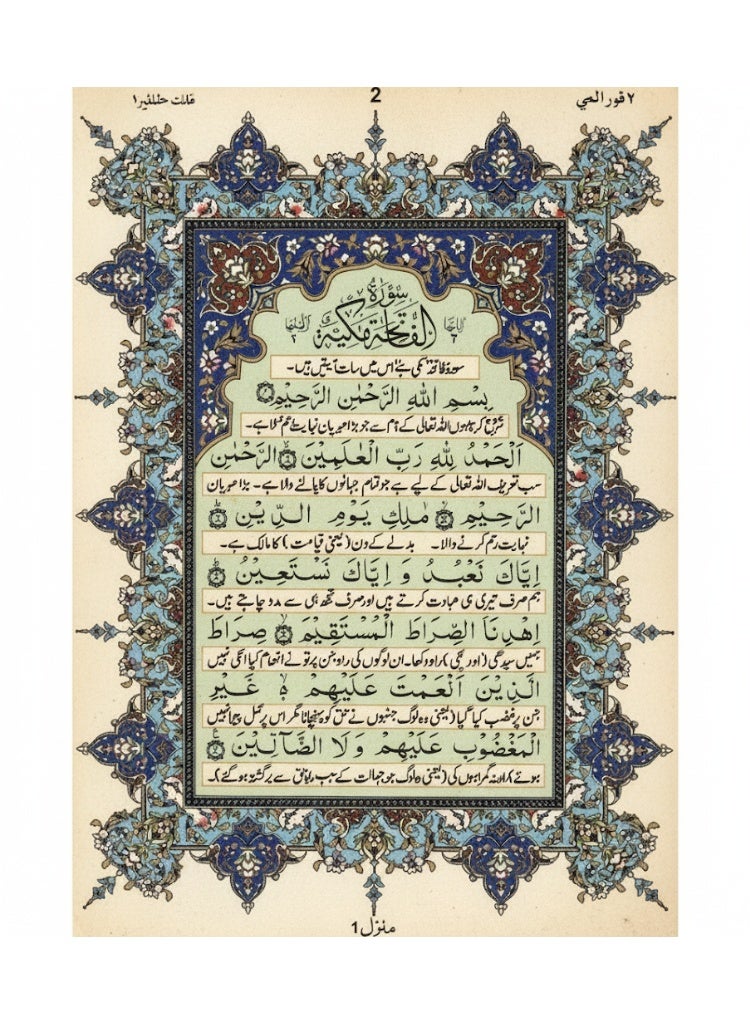 2
سُوْرَةُ
الفاتحة مكية
سورۃ فاتحہ مکی ہے اس میں سات آیتیں ہیں۔
بِسْمِ اللهِ الرَّحْمٰنِ الرَّحِيْمِ
شروع کرتا ہوں اللہ تعالیٰ کے نام سے جو بڑا مہربان نہایت رحم والا ہے۔
اَلْحَمْدُ لِلّٰهِ رَبِّ الْعٰلَمِيْنَ الرَّحْمٰنِ
سب تعریف اللہ تعالیٰ کے لیے ہے جو تمام جہانوں کا پالنے والا ہے۔ بڑا مہربان
الرَّحِيْمِ مٰلِكِ يَوْمِ الدِّيْنِ
نہایت رحم کرنے والا۔ بدلے کے دن (یعنی قیامت) کا مالک ہے۔
اِيَّاكَ نَعْبُدُ وَ اِيَّاكَ نَسْتَعِيْنُ
ہم صرف تیری ہی عبادت کرتے ہیں اور صرف تجھ ہی سے مدد چاہتے ہیں۔
اِهْدِنَا الصِّرَاطَ الْمُسْتَقِيْمَ صِرَاطَ
ہمیں سیدھی (اور سچی) راہ دکھا۔ ان لوگوں کی راہ جن پر تو نے انعام کیا انکی نہیں
الَّذِيْنَ اَنْعَمْتَ عَلَيْهِمْ غَيْرِ
جن پر غضب کیا گیا (یعنی وہ لوگ جنہوں نے حق کو پہچانا مگر اس پر عمل پیرا نہیں
الْمَغْضُوْبِ عَلَيْهِمْ وَلَا الضَّآلِّيْنَ
ہوئے) اور نہ گمراہوں کی (یعنی وہ لوگ جو جہالت کے سبب راہ حق سے برگشتہ ہو گئے)۔
منزل 1